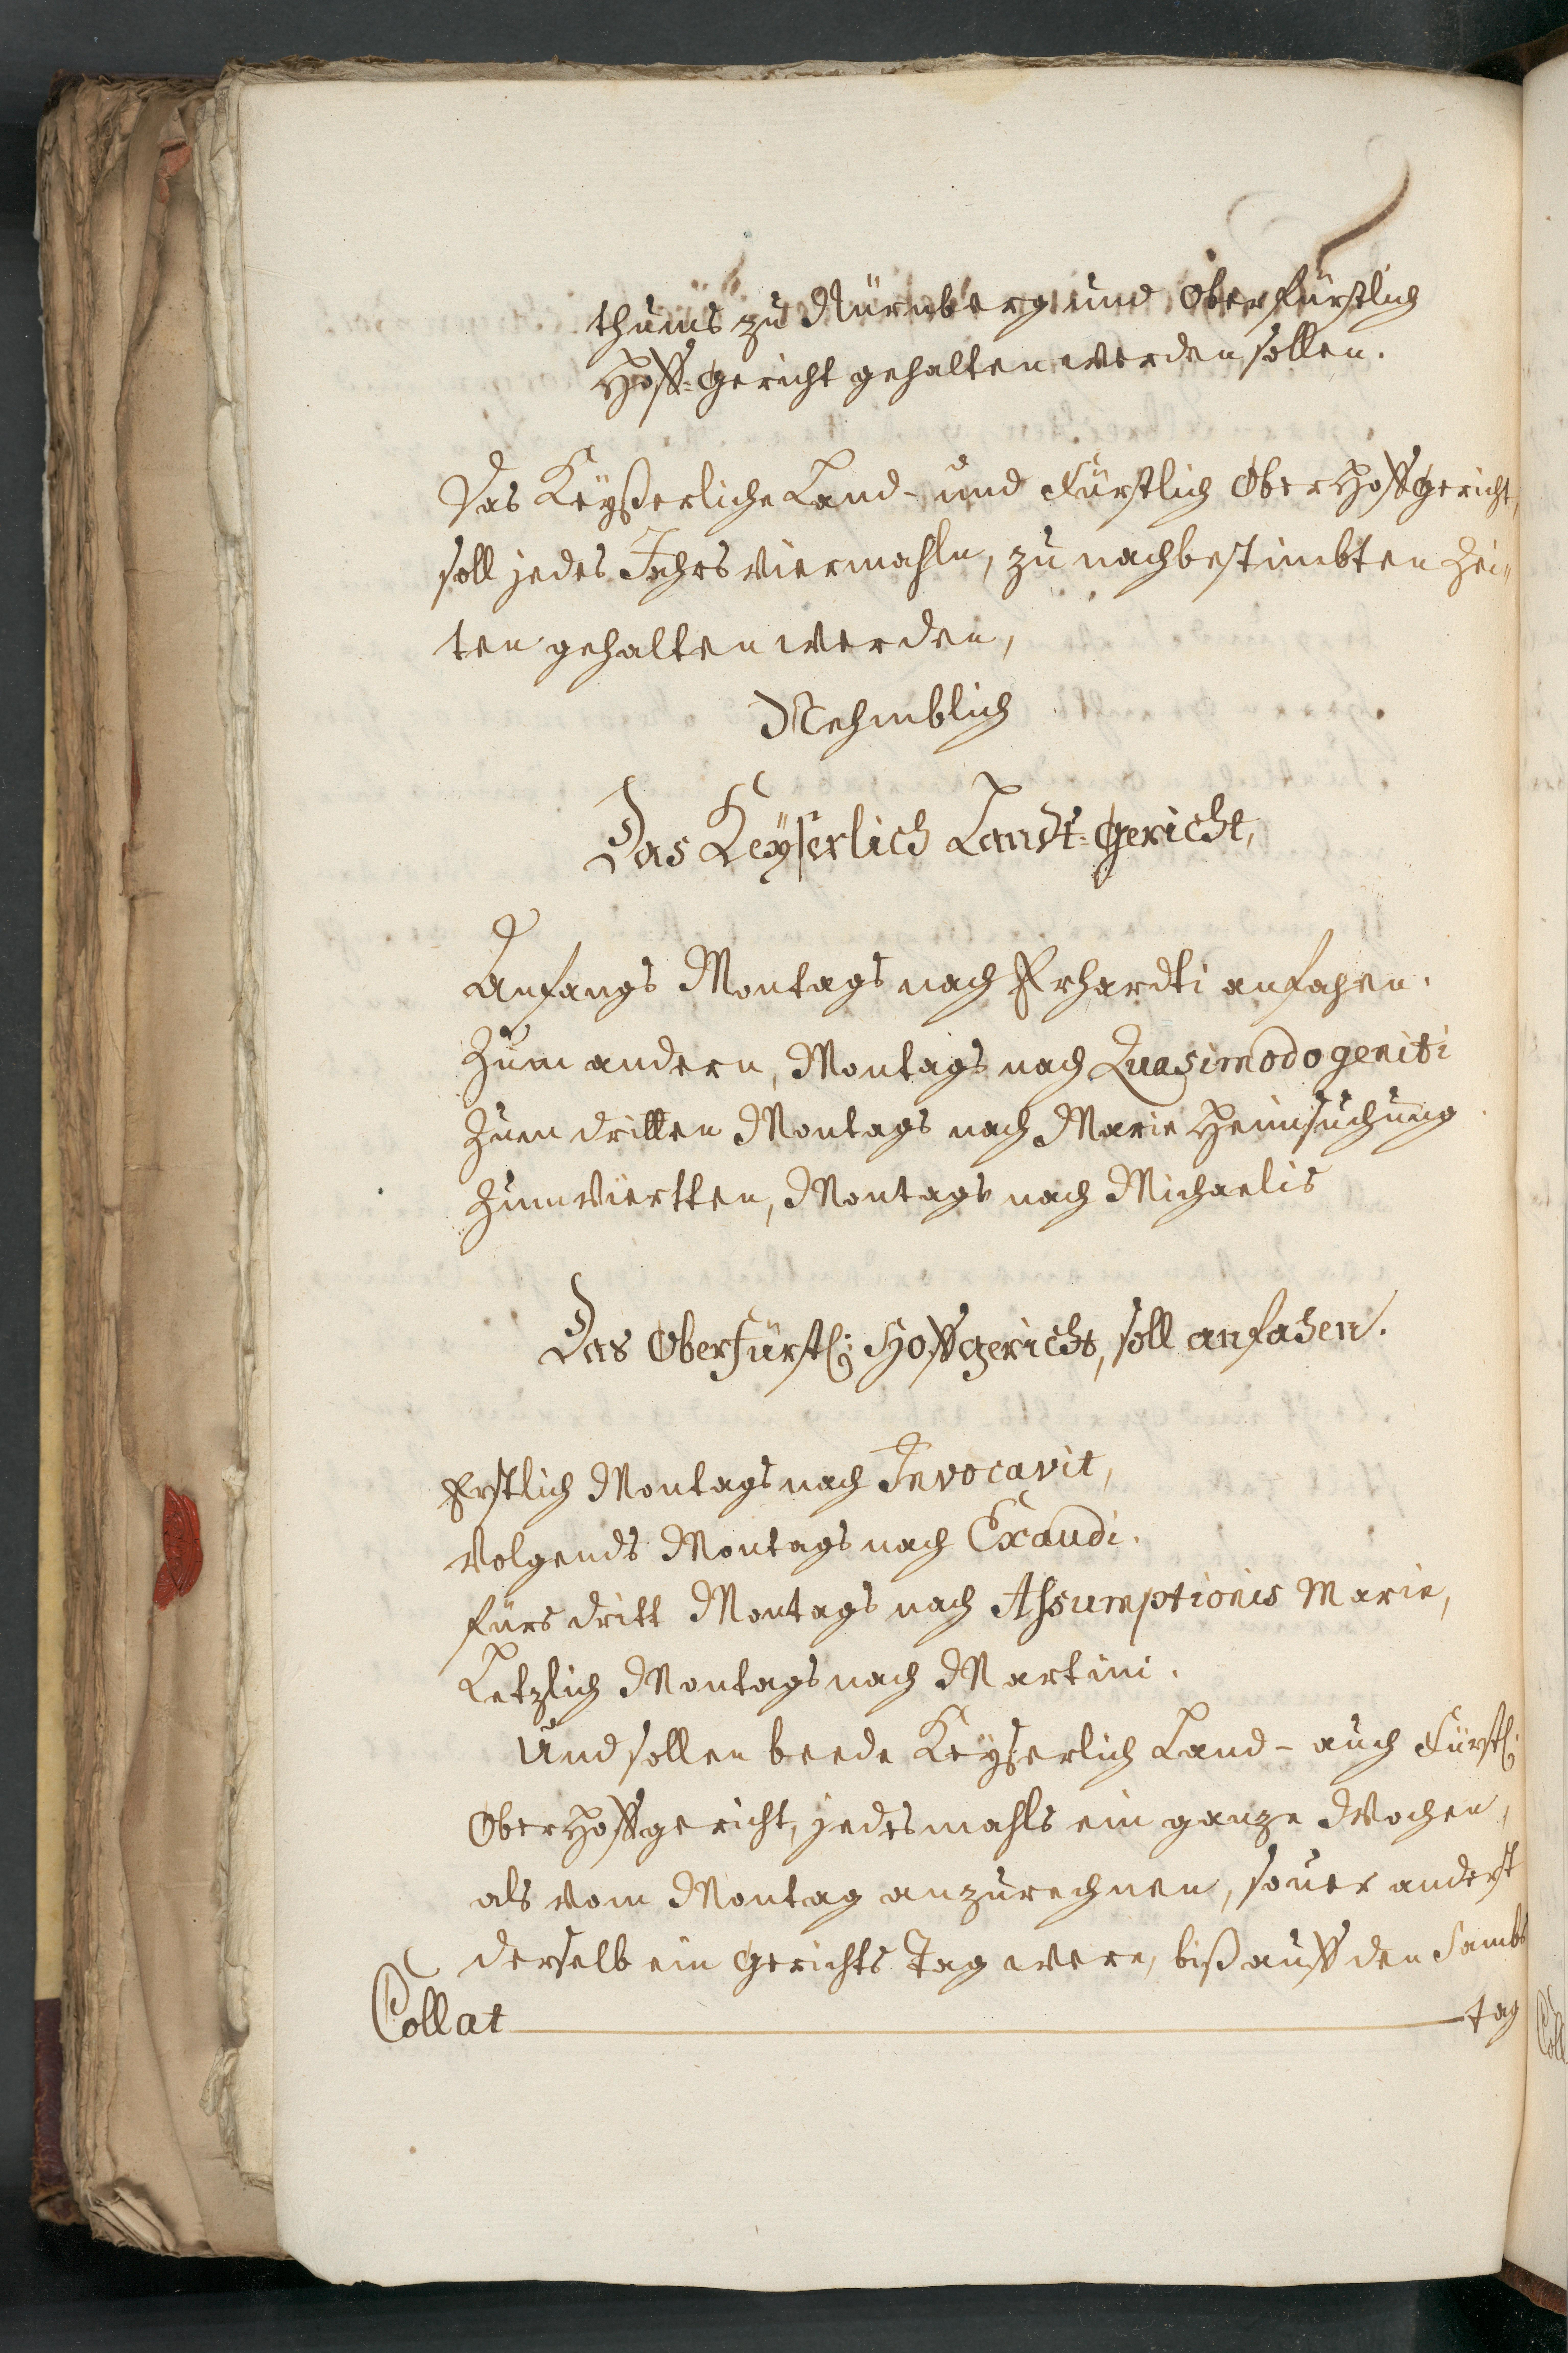 thums zu Nürnberg und Oberfürstlich
Hoff-Gericht gehalten werden sollen.
Das Keyßerliche Land- und Fürstlich Ober Hoffgericht,
soll jedes Jahrs viermahln, zu nachbestimbten Zei„
ten gehalten werden,
Nehmblich
Das Keyserlich Landt-Gericht,
Anfangs Montags nach Erhardti anfahen.
Zum andern, Montags nach Quasimodogeniti
Zum dritten Montags nach Marie Heimsuchung
Zum viertten, Montags nach Michaelis
Das Oberfürstl: Hoffgericht, soll anfahen.
Erstlich Montags nach Invocavit,
Volgends Montags nach Exaudi.
fürs dritt Montags nach Assumptionis Marie,
Letzlich Montags nach Martini.
Und sollen beede Keyserlich Land- auch Fürstl:
Ober Hoffgericht, jedesmahls ein ganze Wochen,
als vom Montag anzurechnen, sover anderst
derselb ein Gerichts Tag were, biß auff den Sambs
Collat tag